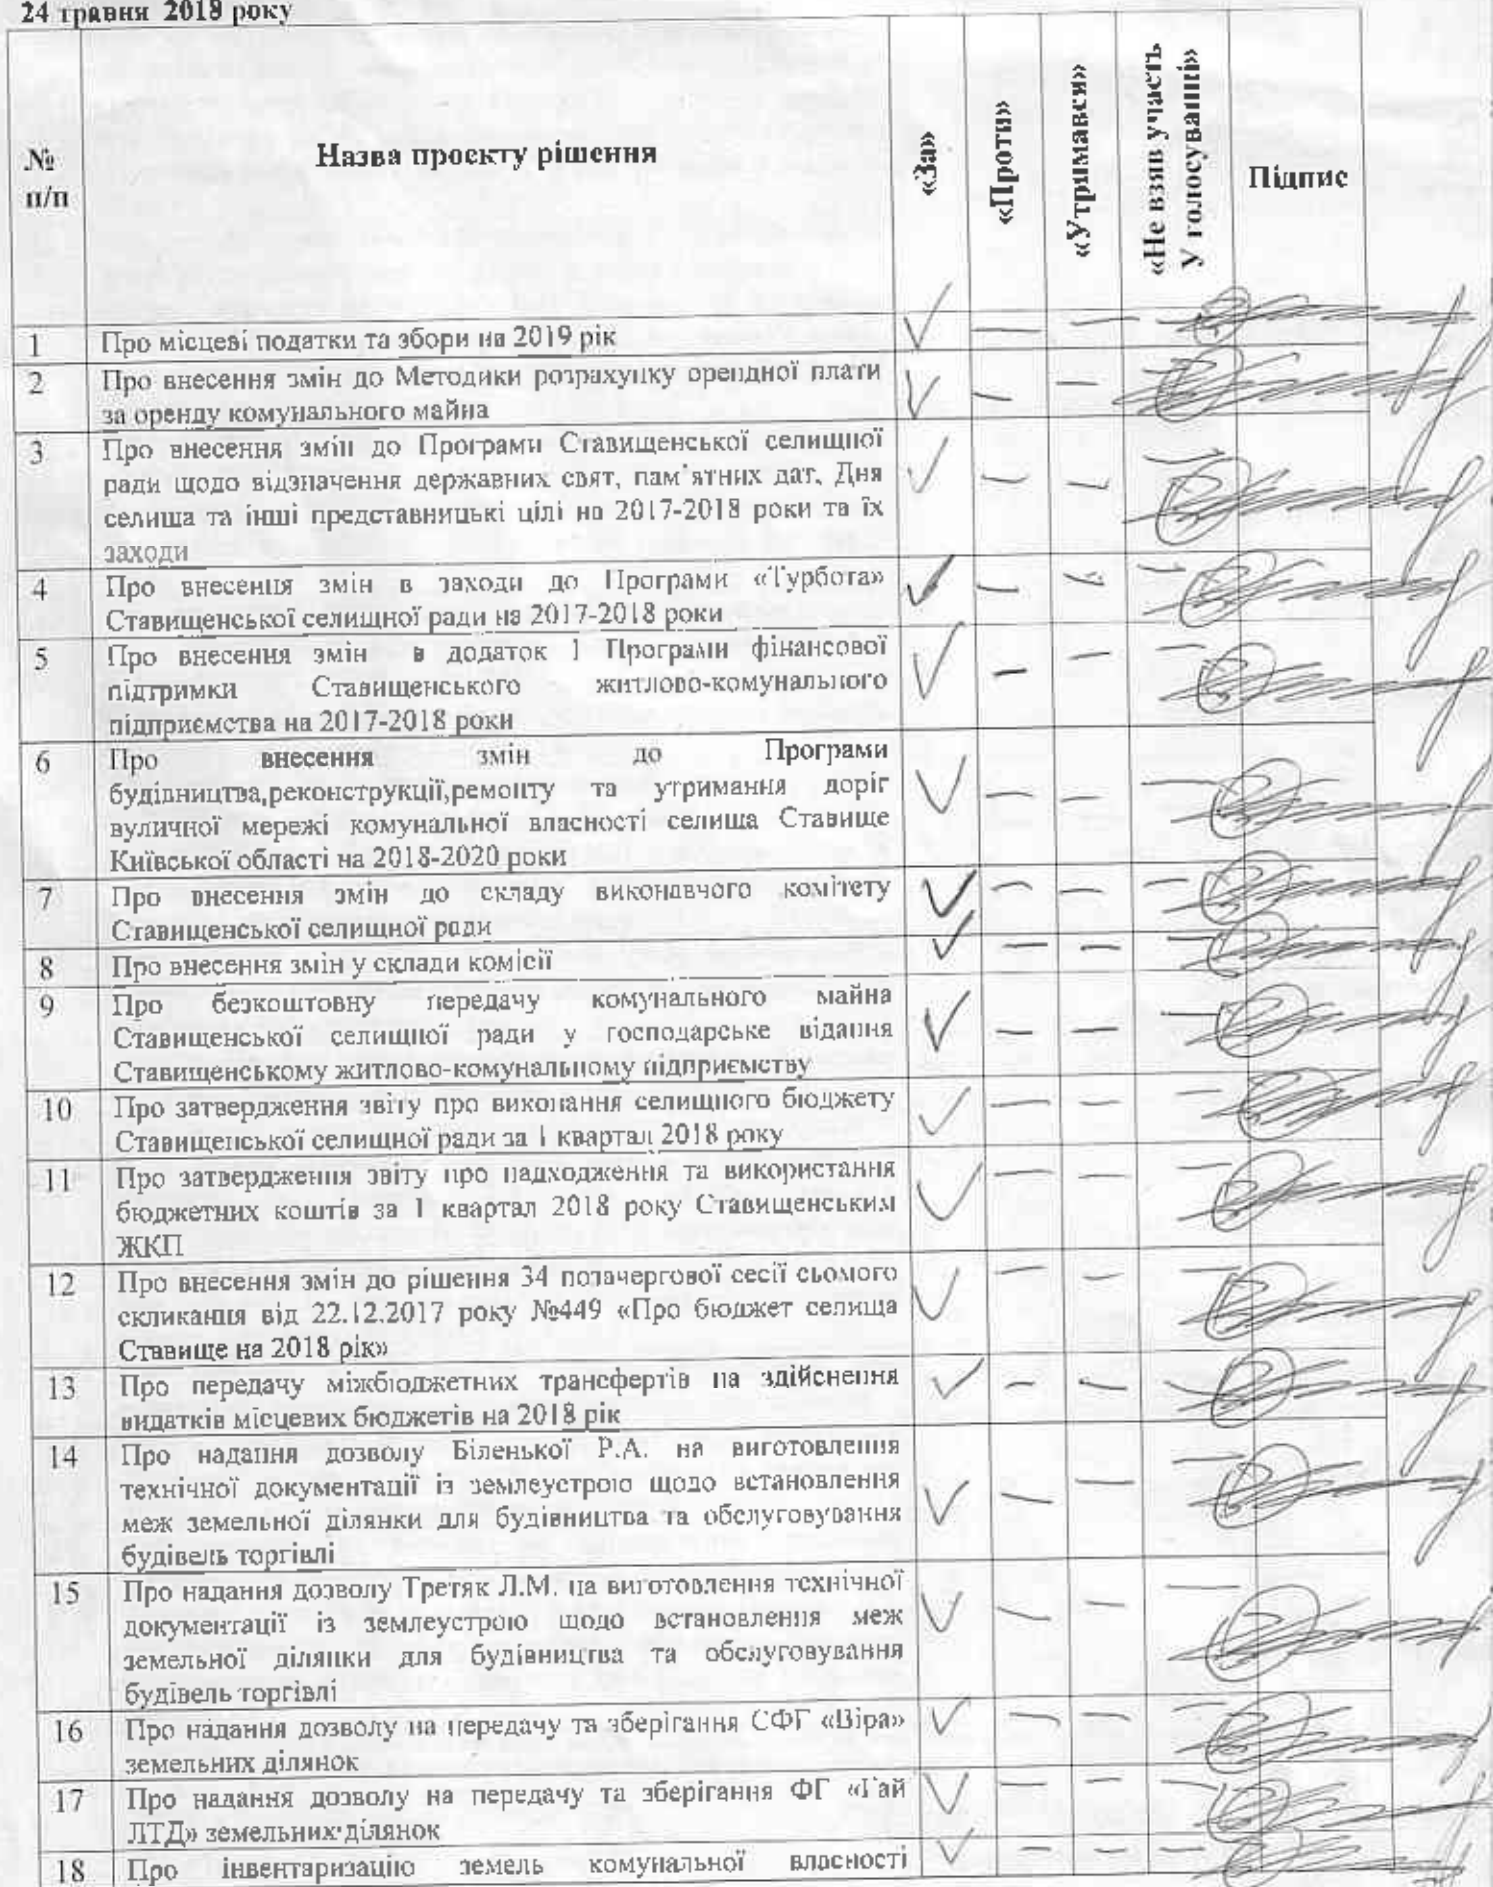 24 травня 2018 року
№
п/п
Назва проєкту рішення
«За»
«Проти»
«Утримався»
«Не взяв участь
У голосуванні»
Підпис
1 Про місцеві податки та збори на 2019 рік
2 Про внесення змін до Методики розрахунку орендної плати
за оренду комунального майна
3 Про внесення змін до Програми Ставищенської селищної
ради щодо відзначення державних свят, пам'ятних дат, Дня
селища та інші представницькі цілі на 2017-2018 роки та їх
заходи
4 Про внесення змін в заходи до Програми «Турбота»
Ставищенської селищної ради на 2017-2018 роки
5 Про внесення змін в додаток 1 Програми фінансової
підтримки Ставищенського житлово-комунального
підприємства на 2017-2018 роки
6 Про внесення змін до Програми
будівництва,реконструкції,ремонту та утримання доріг
вуличної мережі комунальної власності селища Ставище
Київської області на 2018-2020 роки
7 Про внесення змін до складу виконавчого комітету
Ставищенської селищної ради
8 Про внесення змін у склади комісії
9 Про безкоштовну передачу комунального майна
Ставищенської селищної ради у господарське відання
Ставищенському житлово-комунальному підприємству
10 Про затвердження звіту про виконання селищного бюджету
Ставищенської селищної ради за 1 квартал 2018 року
11 Про затвердження звіту про надходження та використання
бюджетних коштів за 1 квартал 2018 року Ставищенським
ЖКП
12 Про внесення змін до рішення 34 позачергової сесії сьомого
скликання від 22.12.2017 року №449 «Про бюджет селища
Ставище на 2018 рік»
13 Про передачу міжбюджетних трансфертів на здійснення
видатків місцевих бюджетів на 2018 рік
14 Про надання дозволу Біленької Р.А. на виготовлення
технічної документації із землеустрою щодо встановлення
меж земельної ділянки для будівництва та обслуговування
будівель торгівлі
15 Про надання дозволу Третяк Л.М. на виготовлення технічної
документації із землеустрою щодо встановлення меж
земельної ділянки для будівництва та обслуговування
будівель торгівлі
16 Про надання дозволу на передачу та зберігання СФГ «Віра»
земельних ділянок
17 Про надання дозволу на передачу та зберігання ФГ «Гай
ЛТД» земельних ділянок
18 Про інвентаризацію земель комунальної власності